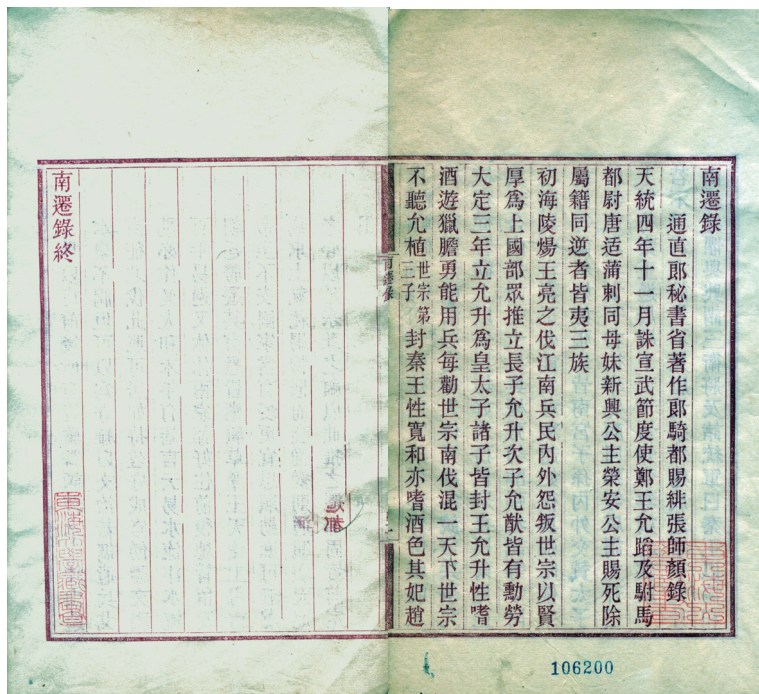 南遷錄
通直郎秘書省著作郎騎都賜緋張師顏錄
天統四年十一月誅宣武節度使鄭王允蹈及駙馬
都尉唐适蒲刺同母妹新興公主榮安公主賜死除
屬籍同逆者皆夷三族
初海陵煬王亮之伐江南兵民內外怨叛世宗以賢
厚爲上國部眾推立長子允升次子允猷皆有勳勞
大定三年立允升爲皇太子諸子皆封王允升性嗜
酒遊獵膽勇能用兵每勸世宗南伐混一天下世宗
不聽允植世宗第三子封秦王性寬和亦嗜酒色其妃趙
南遷錄
南遷錄終
106200